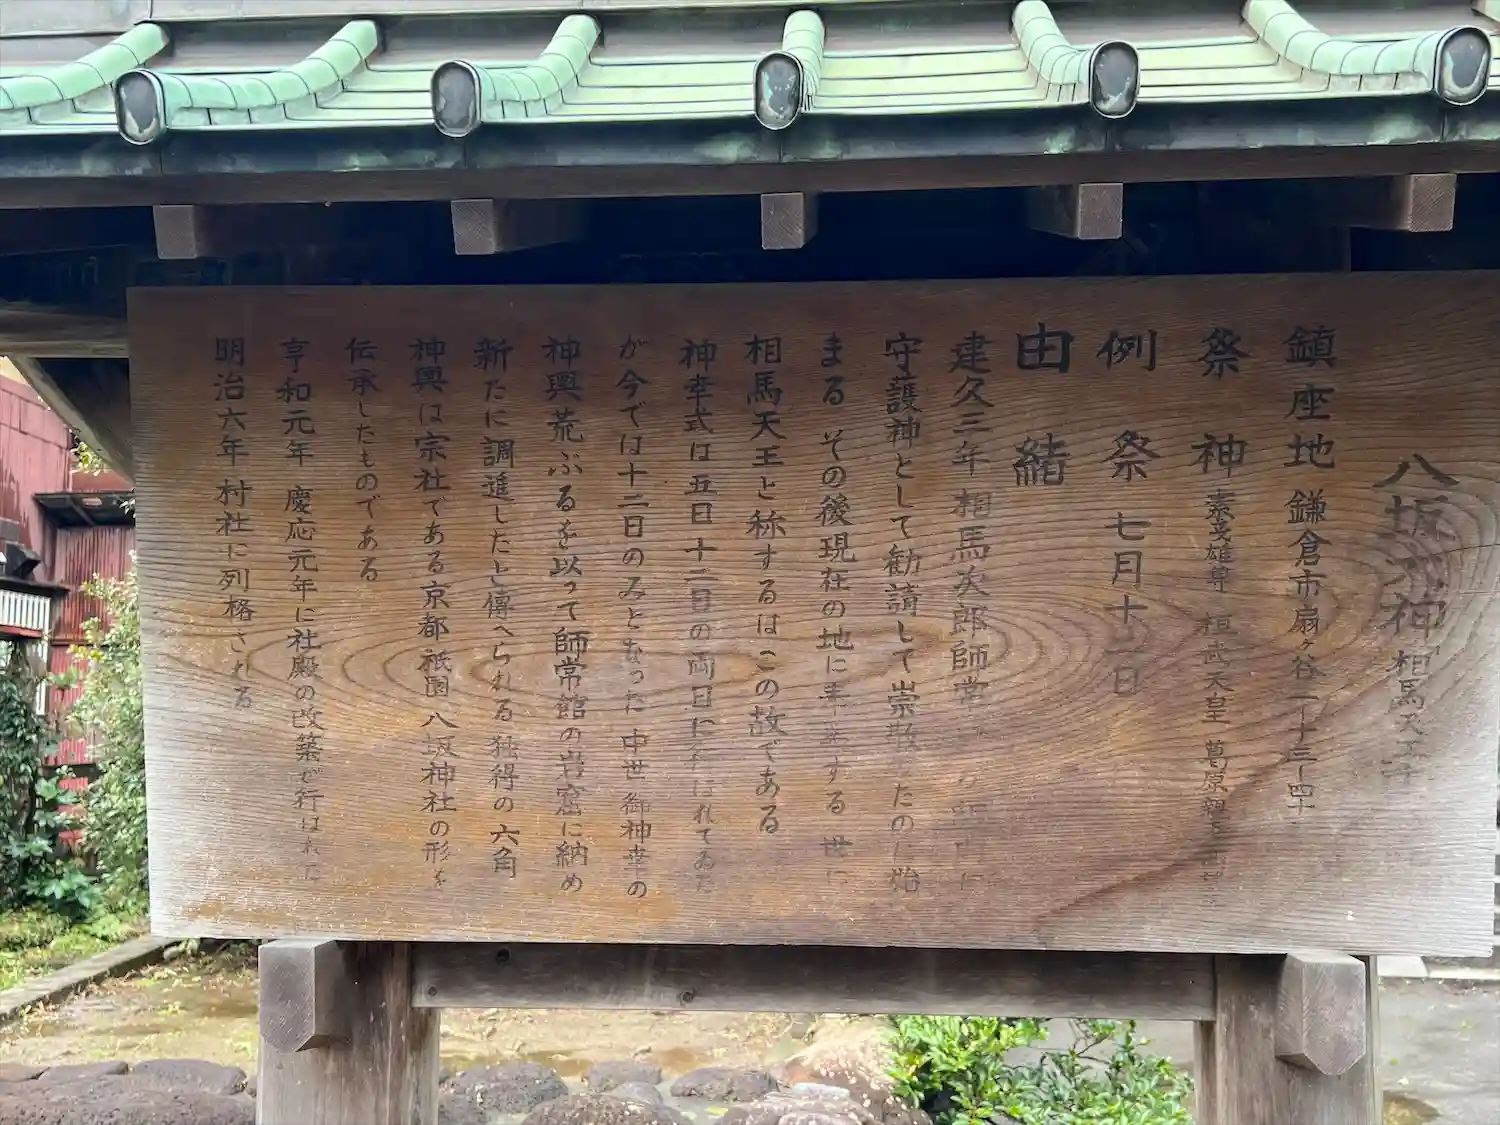 八坂大神 相馬天王
鎮座地 鎌倉市扇ヶ谷一ー十三ー四十
祭神 素戔雄尊 桓武天皇 葛原親王 高望王
例祭 七月十二日
由緒
建久三年相馬次郎師常
守護神として勧請して崇敬したのに始
まる その後現在の地に奉遷する 世に
相馬天王と称するはこの故である
神幸式は五日十二日の両日に行はれてゐた
が今では十二日のみとなった 中世御神幸の
神輿荒ぶるを以って師常館の岩窟に納め
新たに調進したと傳へられる 独得の六角
神輿は宗社である京都祇園八坂神社の形を
伝承したものである
享和元年 慶応元年に社殿の改築が行はれた
明治六年村社に列格される